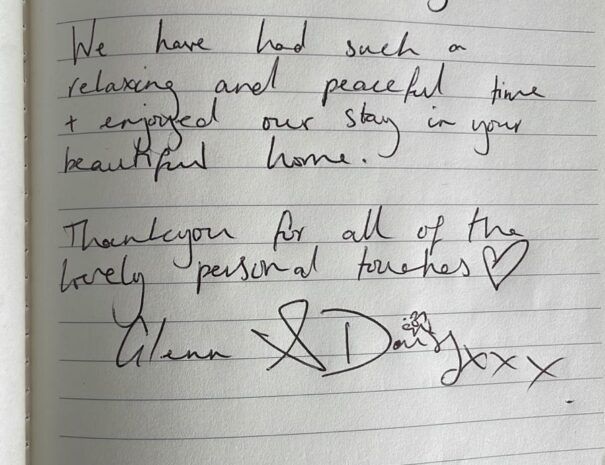 We have had such a
relaxing and peaceful time
+ enjoyed our stay in your
beautiful home.
Thankyou for all of the
lovely personal touches ♡
Glenn & Daisy xxx